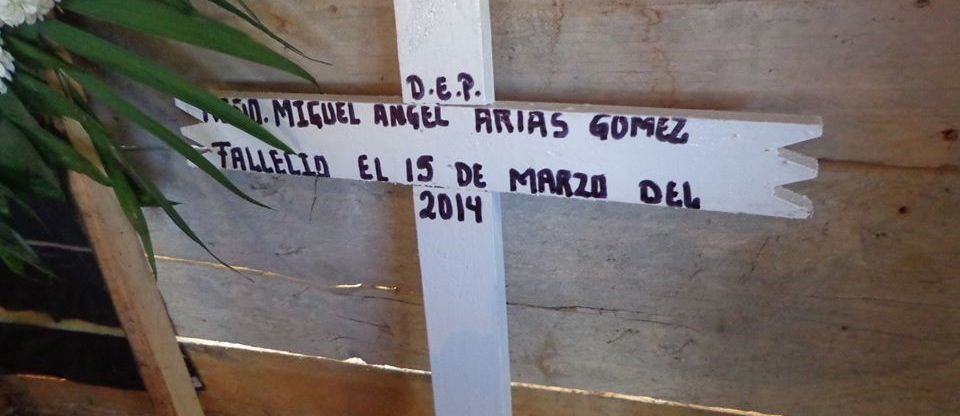 D.E.P.
MIGUEL ANGEL ARIAS GOMEZ
FALLECIO EL 15 DE MARZO DEL
2014